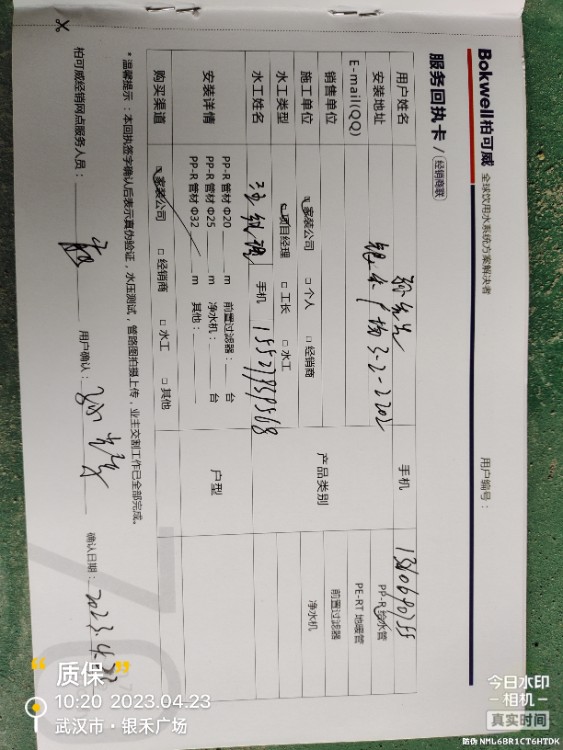 Bokwell柏可威 全球饮用水系统方案解决者
服务回执卡 / 经销商联
用户编号：
用户姓名 孙先生 手机
安装地址 银禾广场3-2-2202
E-mail(QQ)
销售单位
产品类别
PP-R 给水管
PE-RT 地暖管
前置过滤器
净水机
施工单位 家装公司 □ 个人 □ 经销商
水工类型 项目经理 □ 工长 □ 水工
水工姓名 手机 15527959568
安装详情
PP-R 管材 Φ20 m 前置过滤器： 台
PP-R 管材 Φ25 m 净水机： 台
PP-R 管材 Φ32 m 其他：
户型
购买渠道 家装公司 □ 经销商 □ 水工 □ 其他
* 温馨提示：本回执签字确认后表示真伪验证，水压测试，管路图拍摄上传，业主交割工作已全部完成。
柏可威经销网点服务人员： 用户确认： 确认日期： 2023.4.23
质保
10:20 2023.04.23
武汉市·银禾广场
今日水印
相机
真实时间
防伪 NML6BR1CT6HTDK